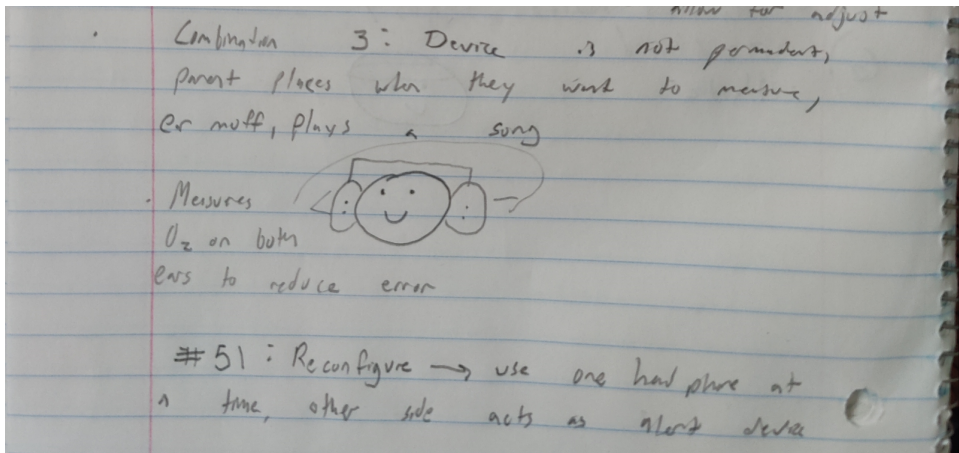 allow for adjust
Combination 3: Device is not permadent,
parent places when they want to measure,
er muff, plays a song
Measures
O₂ on both
ears to reduce error
#51: Reconfigure → use one head phone at
a time, other side acts as alert device